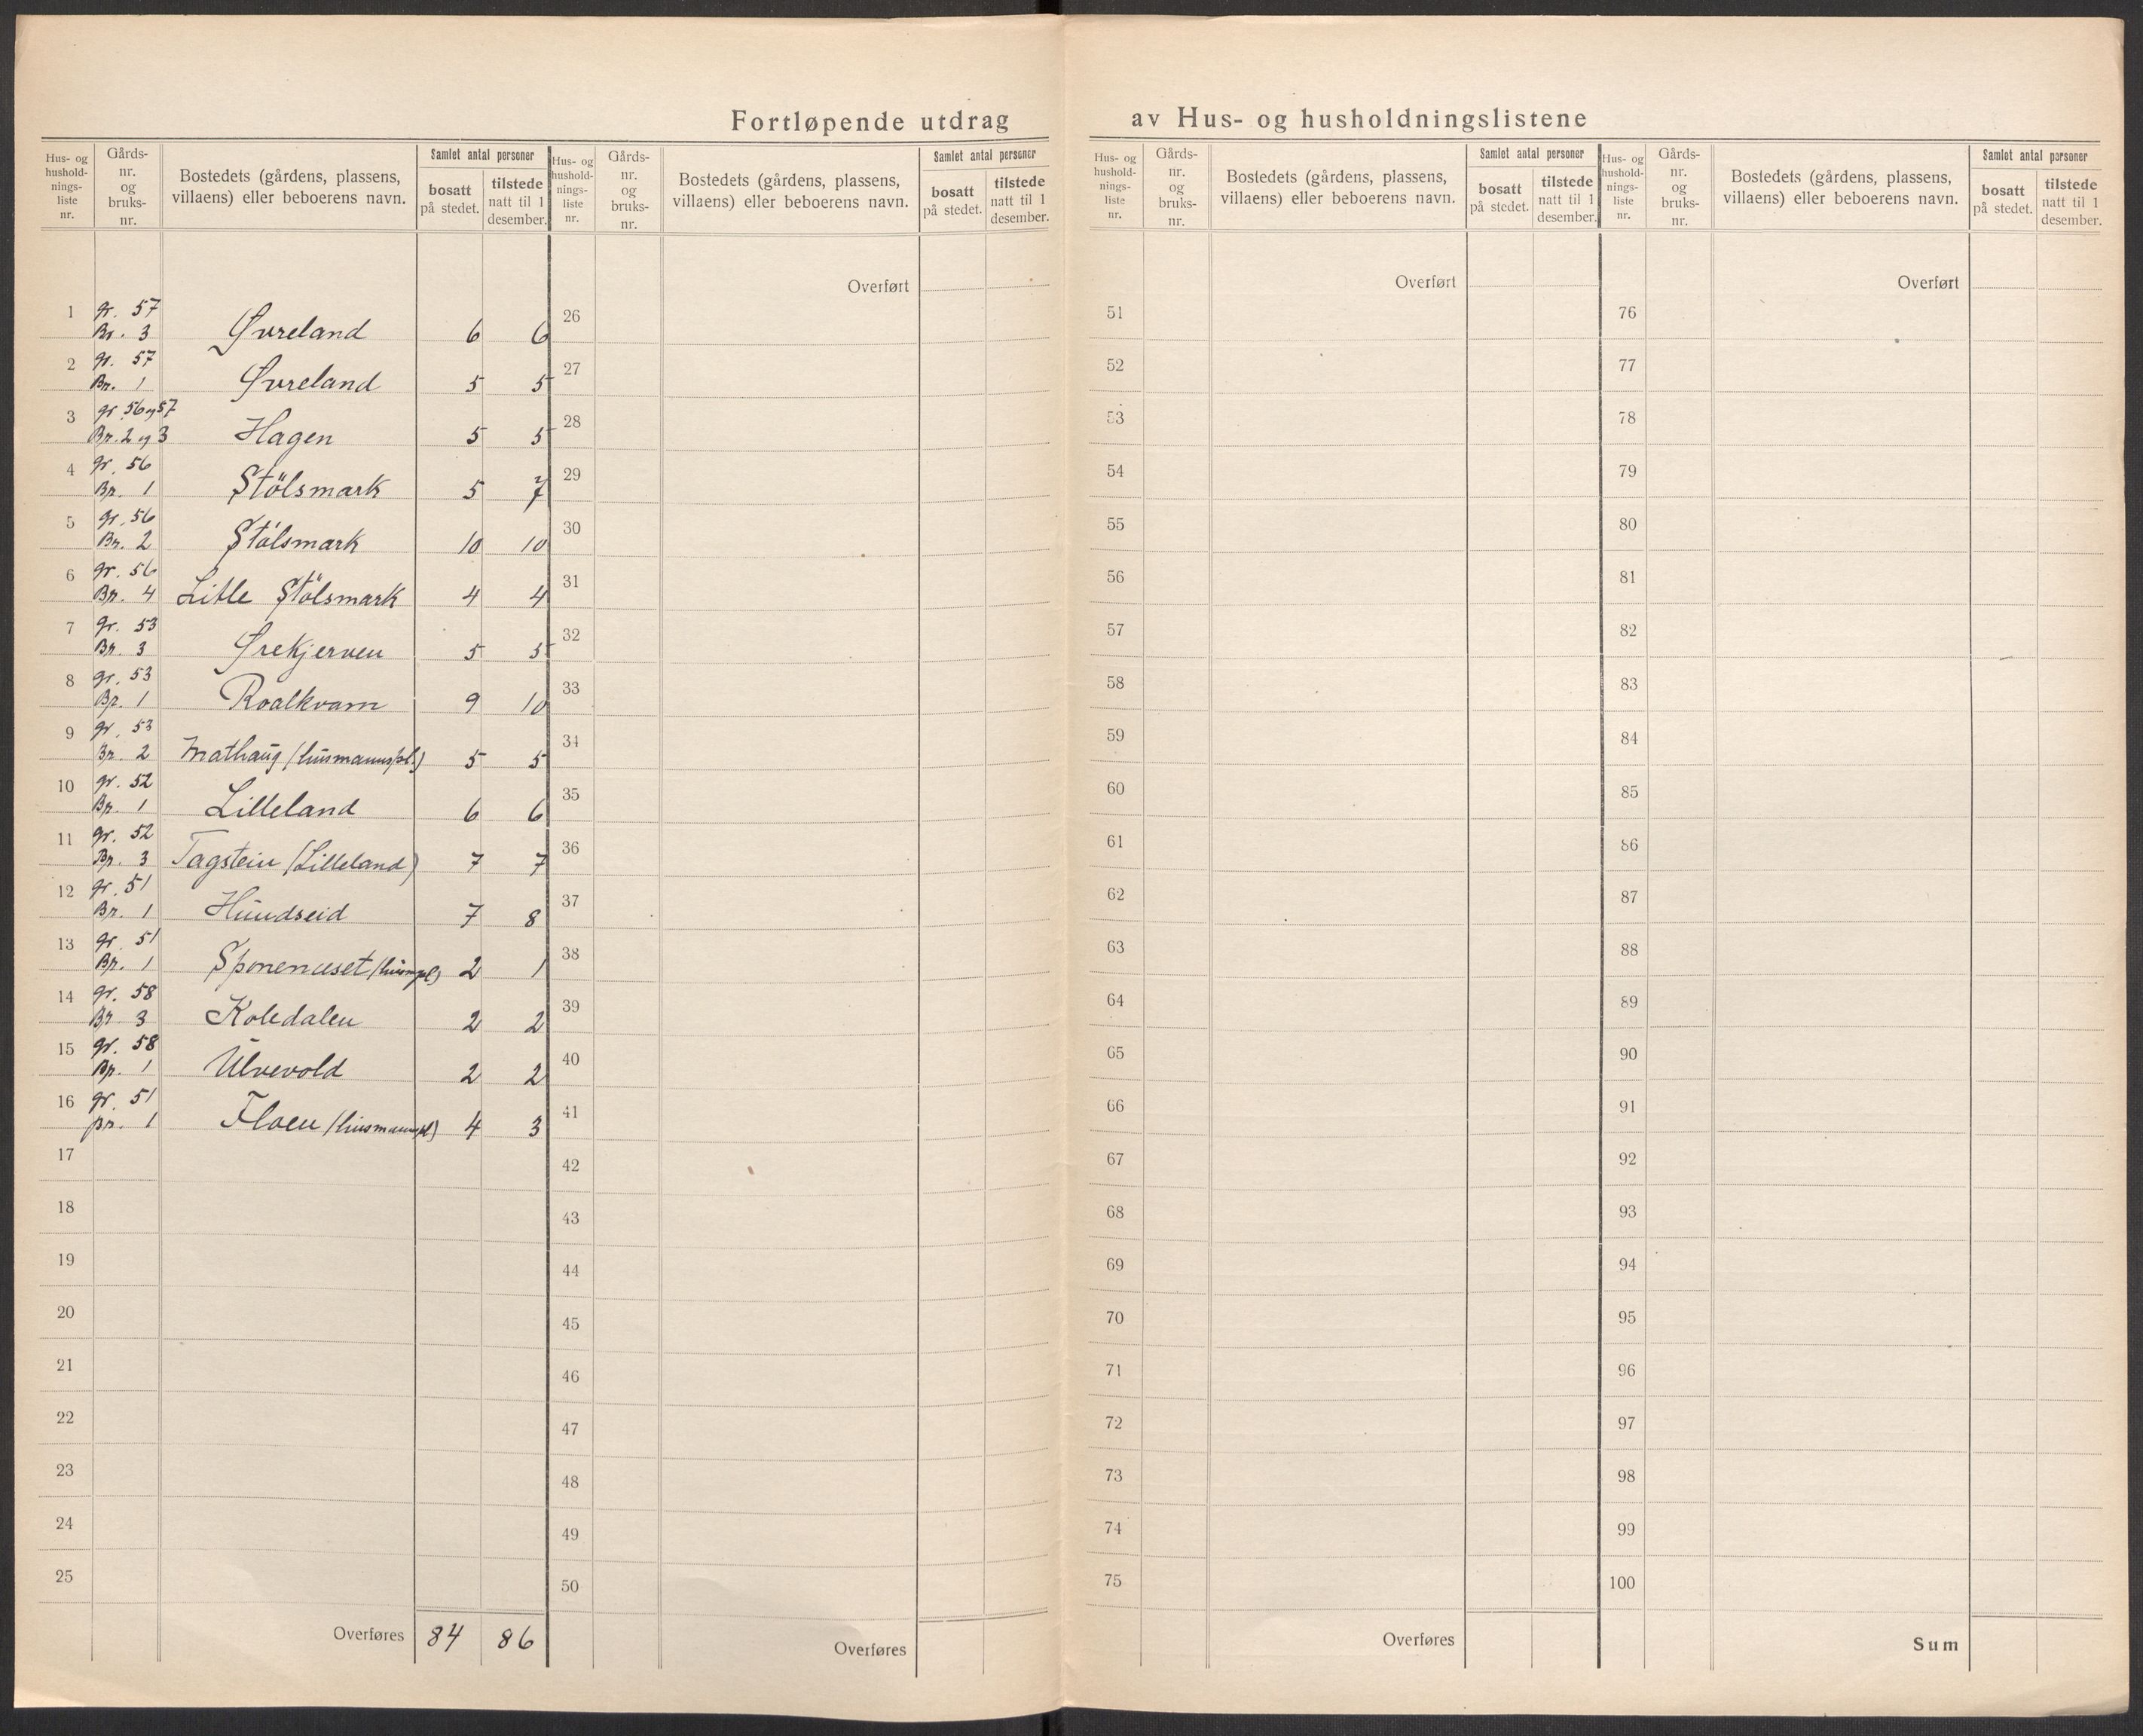 Fortløpende utdrag av Hus- og husholdningslistene
Hus- og hushold-nings-liste nr. Gårds-nr. og bruks-nr. Bostedets (gårdens, plassens, villaens) eller beboerens navn. Samlet antal personer bosatt på stedet. tilstede natt til 1 desember.
Hus- og hushold-nings-liste nr. Gårds-nr. og bruks-nr. Bostedets (gårdens, plassens, villaens) eller beboerens navn. Samlet antal personer bosatt på stedet. tilstede natt til 1 desember.
Hus- og hushold-nings-liste nr. Gårds-nr. og bruks-nr. Bostedets (gårdens, plassens, villaens) eller beboerens navn. Samlet antal personer bosatt på stedet. tilstede natt til 1 desember.
Hus- og hushold-nings-liste nr. Gårds-nr. og bruks-nr. Bostedets (gårdens, plassens, villaens) eller beboerens navn. Samlet antal personer bosatt på stedet. tilstede natt til 1 desember.
1 gr. 57
Br. 3 Øvreland 6 6
2 gr. 57
Br. 1 Øvreland 5 5
3 gr. 56 og 57
Br. 2 og 3 Hagen 5 5
4 gr. 56
Br. 1 Stölsmark 5 7
5 gr. 56
Br. 2 Stölsmark 10 10
6 gr. 56
Br. 4 Litle Stölsmark 4 4
7 gr. 53
Br. 3 Ørekjerven 5 5
8 gr. 53
Br. 1 Roalkvam 9 10
9 gr. 53
Br. 2 Mathaug (husmannspl.) 5 5
10 gr. 52
Br. 1 Lilleland 6 6
11 gr. 52
Br. 3 Tagstein (Lilleland) 7 7
12 gr. 51
Br. 1 Hundseid 7 8
13 gr. 51
Br. 1 Sponeneset (husmpl) 2 1
14 gr. 58
Br 3 Koledalen 2 2
15 gr. 58
Br. 1 Ulvevold 2 2
16 gr. 51
Br. 1 Floen (husmannspl) 4 3
17
18
19
20
21
22
23
24
25
Overføres 84 86
Overført
26
27
28
29
30
31
32
33
34
35
36
37
38
39
40
41
42
43
44
45
46
47
48
49
50
Overføres
Overført
51
52
53
54
55
56
57
58
59
60
61
62
63
64
65
66
67
68
69
70
71
72
73
74
75
Overføres
Overført
76
77
78
79
80
81
82
83
84
85
86
87
88
89
90
91
92
93
94
95
96
97
98
99
100
Sum